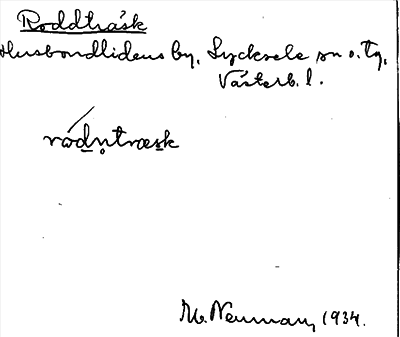 Roddträsk
Husbondlidens by, Lycksele sn o. tg,
Västerb. l.
rodn̥træsk
M. Neuman, 1934.